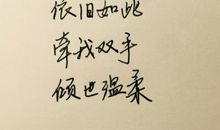 依旧如此
牵我双手
倾世温柔